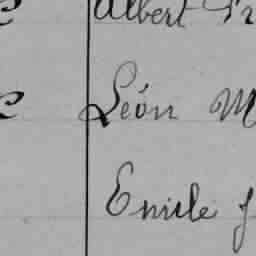 Albert
Léon M
Emile J